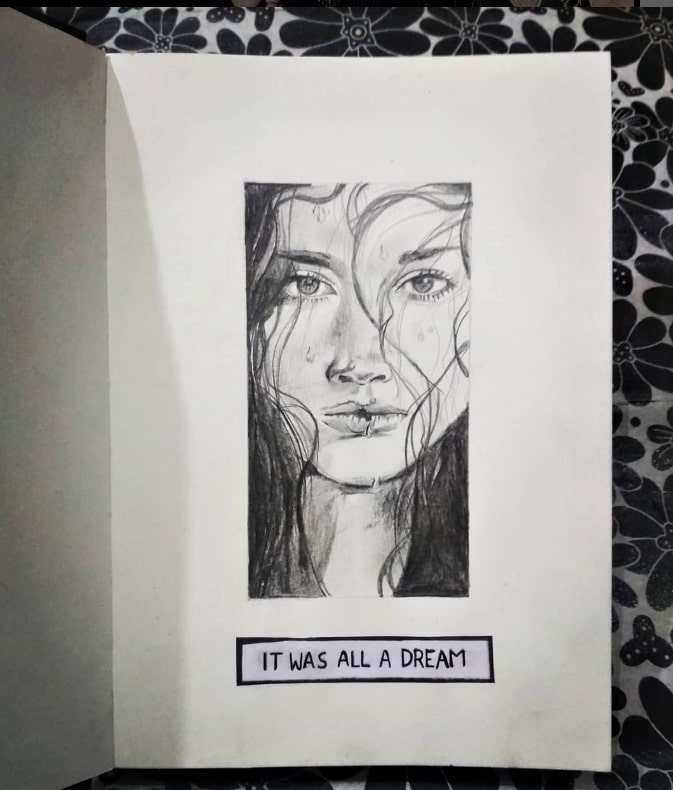 IT WAS ALL A DREAM